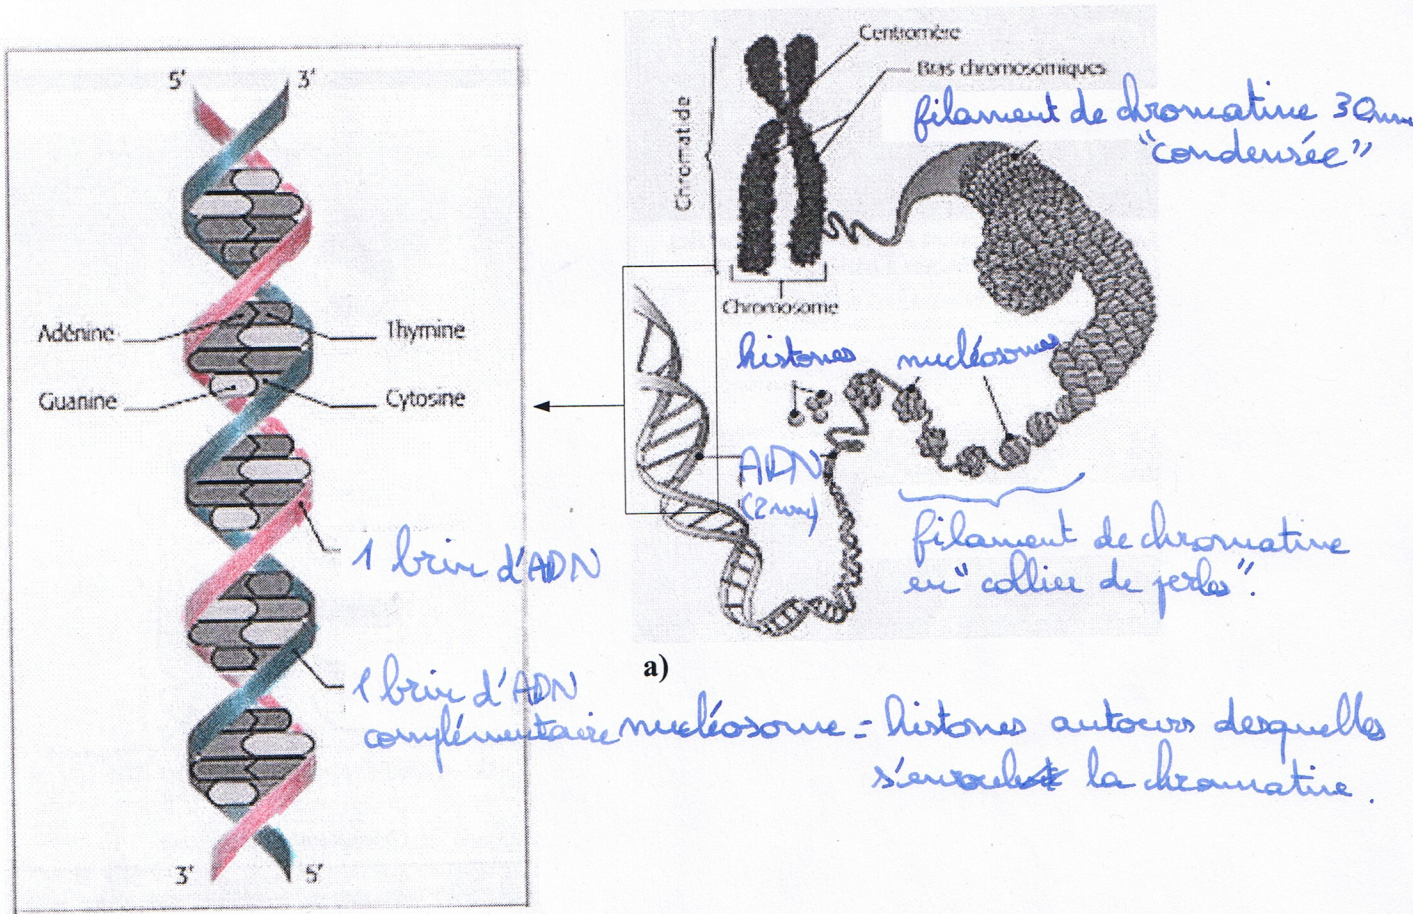 5' 3'
Adénine
Thymine
Guanine
Cytosine
1 brin d'ADN
1 brin d'ADN
complémentaire
3' 5'
Centromère
Bras chromosomiques
Chromatide
filament de chromatine 30nm
"condensée"
Chromosome
histones
nucléosomes
ADN
(2nm)
filament de chromatine
en "collier de perles".
a)
nucléosome = histones autours desquelles
s'enroule la chromatine.